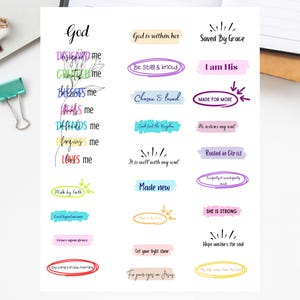 God
DESIGNED me
CREATED me
BLESSES me
HEALS me
DEFENDS me
forgives me
LOVES me
Walk by faith
Grace upon grace
God is within her
Be still & know
Chosen & loved
Seek first the Kingdom
It is well with my soul
Made new
Let your light shine
For your eyes on Jesus
Saved By Grace
I am His
MADE FOR MORE
He restores my soul
Rooted in Christ
fearfully & wonderfully made
SHE IS STRONG
Hope anchors the soul